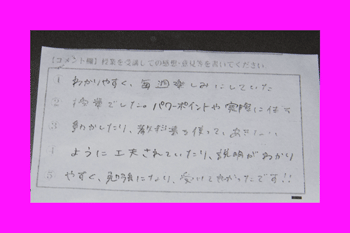 【コメント欄】授業を受講しての感想・意見等を書いてください
1 わかりやすく、毎週楽しみにしていた
2 授業でした。パワーポイントや実際に体を
3 動かしたり、教科書を使って、あきない
4 ように工夫されていたり、説明がわかり
5 やすく、勉強になり、会いてよかったです!!